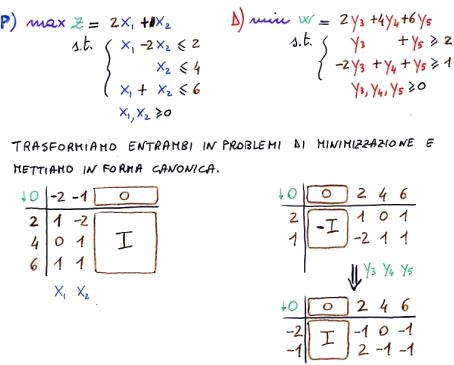 P) max z = 2x₁ + 1x₂
s.t. { x₁ - 2x₂ ≤ 2
x₂ ≤ 4
x₁ + x₂ ≤ 6
x₁, x₂ ≥ 0
D) min w = 2y₃ + 4y₄ + 6y₅
s.t. { y₃ + y₅ ≥ 2
-2y₃ + y₄ + y₅ ≥ 1
y₃, y₄, y₅ ≥ 0
TRASFORMIAMO ENTRAMBI IN PROBLEMI DI MINIMIZZAZIONE E
METTIAMO IN FORMA CANONICA.
↓0 -2 -1 0
2 1 -2 I
4 0 1
6 1 1
x₁ x₂
↓0 0 2 4 6
2 -I 1 0 1
1 -2 1 1
⇓ y₃ y₄ y₅
↓0 0 2 4 6
-2 I -1 0 -1
-1 2 -1 -1